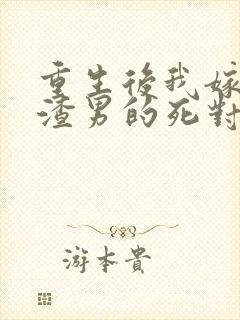 重生後我嫁
渣男的死對
游本貴